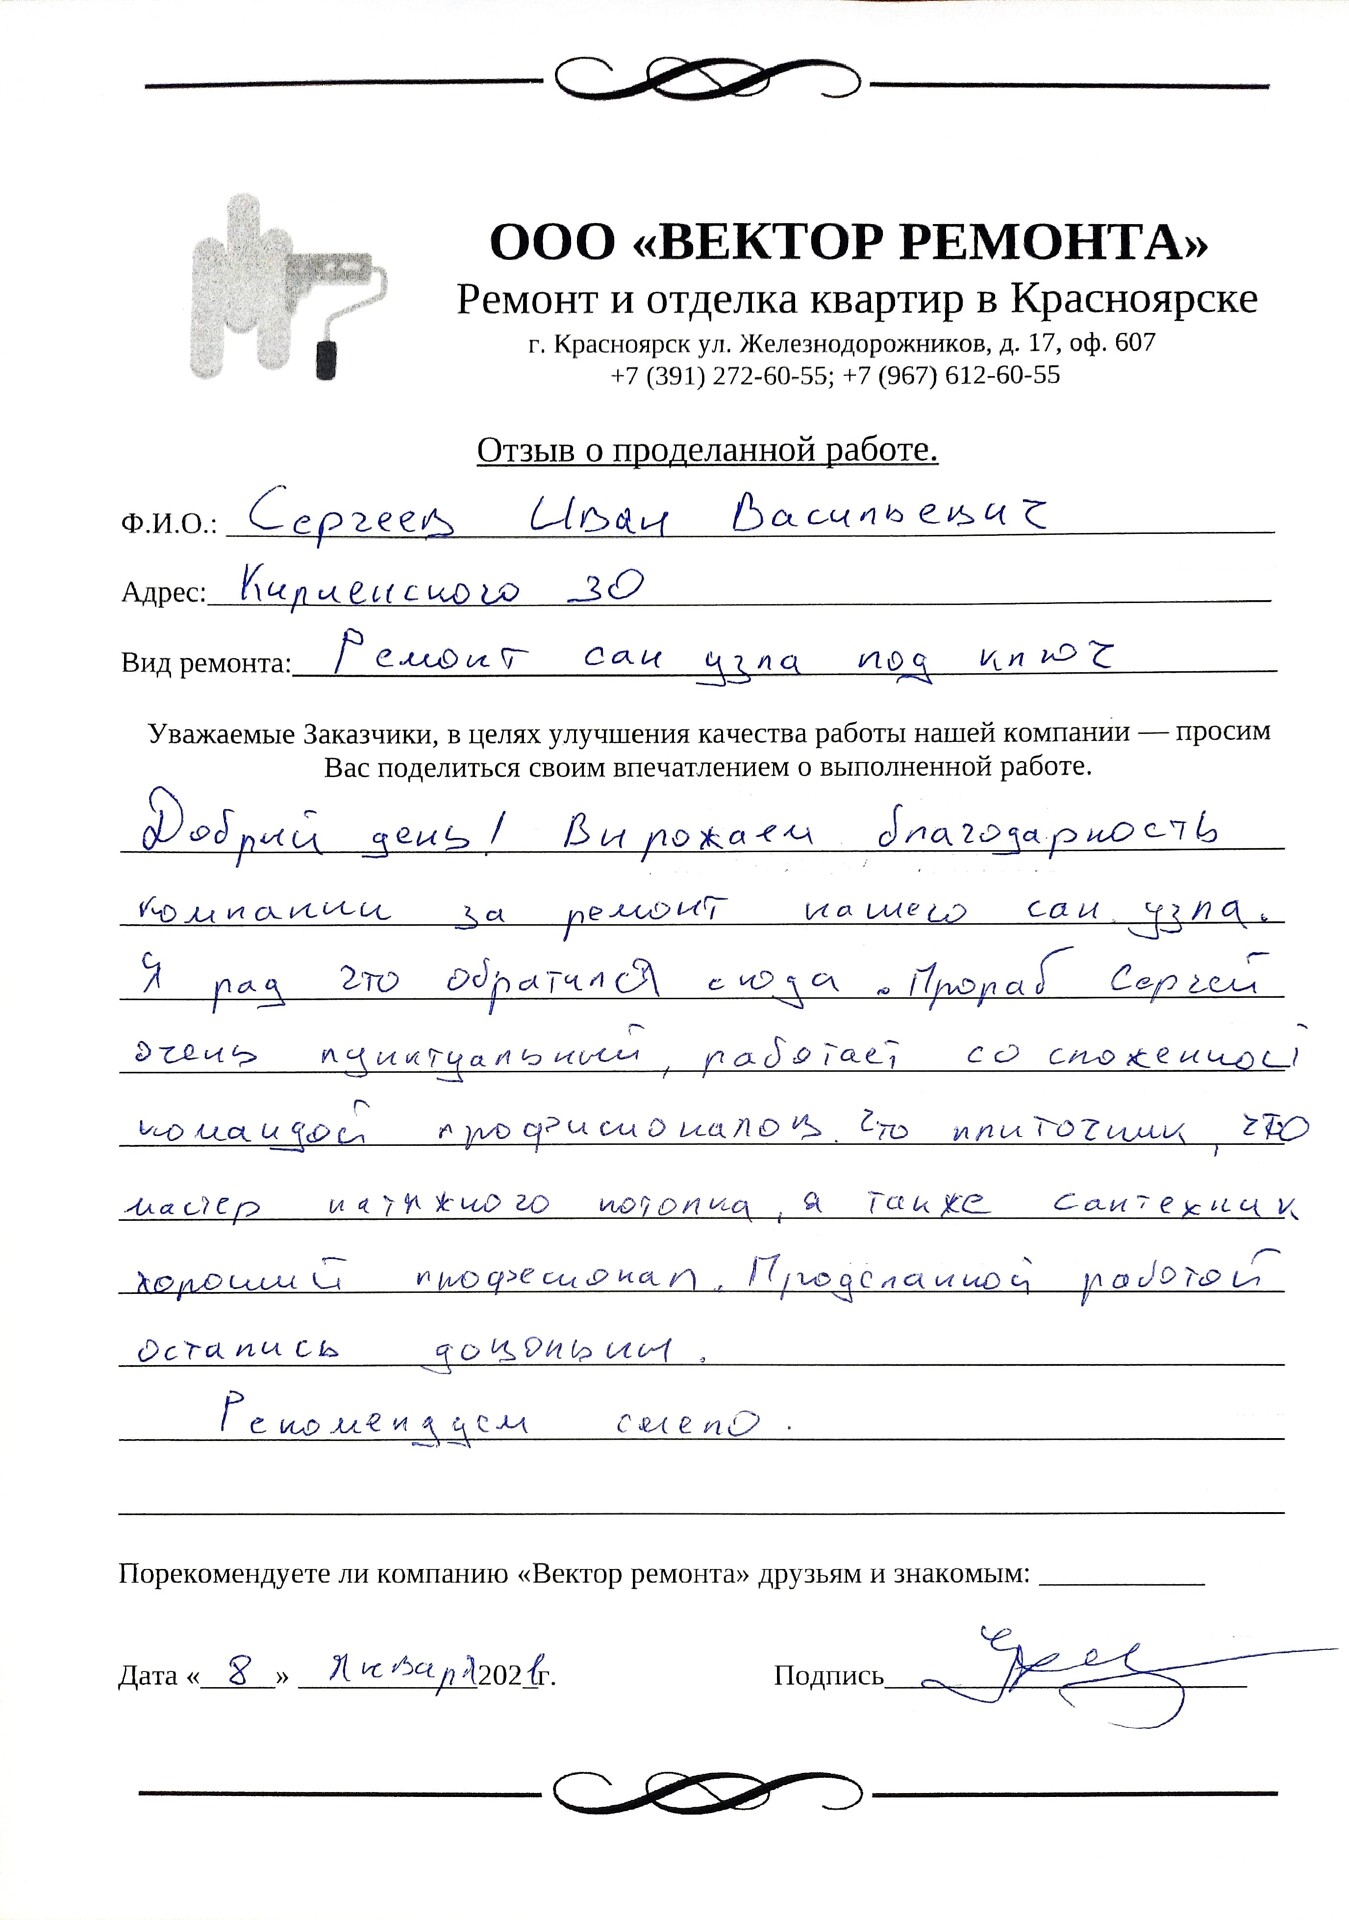 ООО «ВЕКТОР РЕМОНТА»
Ремонт и отделка квартир в Красноярске
г. Красноярск ул. Железнодорожников, д. 17, оф. 607
+7 (391) 272-60-55; +7 (967) 612-60-55
Отзыв о проделанной работе.
Ф.И.О.: Сергеев Иван Васильевич
Адрес: Кирленского 30
Вид ремонта: Ремонт сан узла под ключ
Уважаемые Заказчики, в целях улучшения качества работы нашей компании — просим
Вас поделиться своим впечатлением о выполненной работе.
Добрый день! Вырожаем благодарность
компании за ремонт нашего сан. узла.
Я рад что обратился сюда. Прораб Сергей
очень пунктуальный, работает со сложенной
командой профисионалов. Что плиточник, что
мастер натяжного потолка, а также сантехник
хороший професионал. Проделанной работой
остались доволным.
Рекомендуем смело.
Порекомендуете ли компанию «Вектор ремонта» друзьям и знакомым:
Дата «8» Января 2021г. Подпись